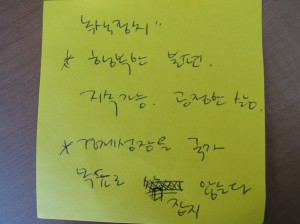 녹색정치"
* 행복한 불편.
지속가능. 공정한 삶.
* 경제성장을 국가
목표로 잡지 않는다